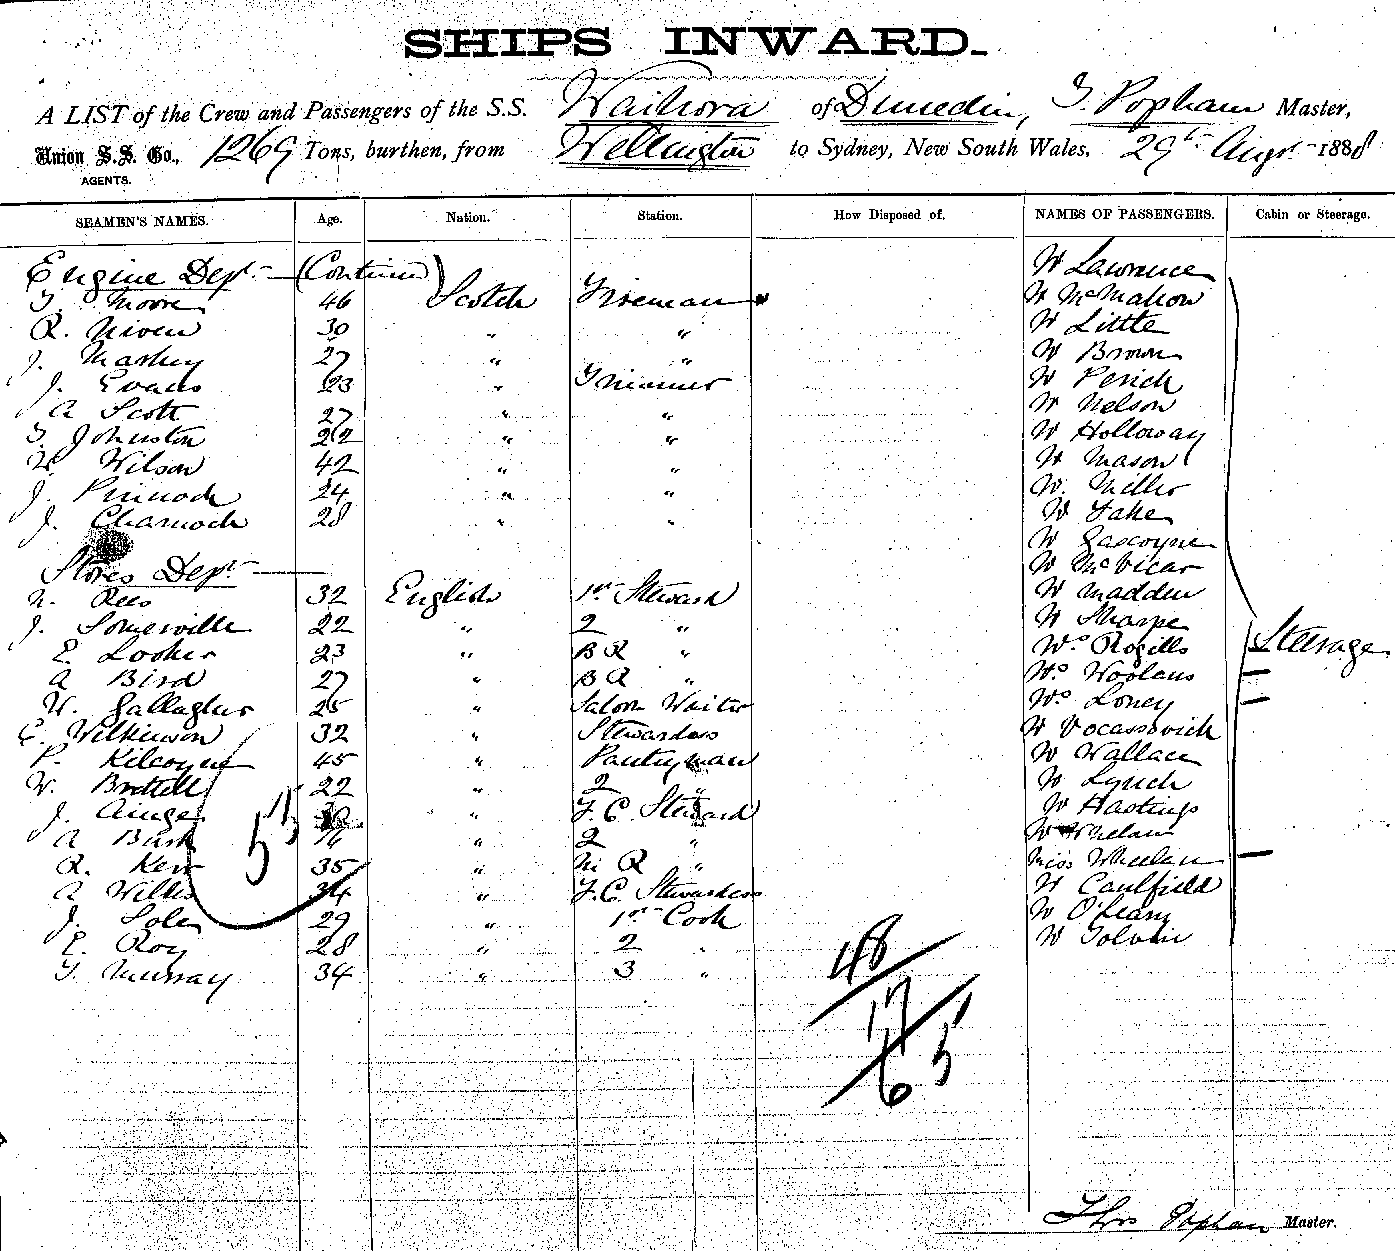 SHIPS INWARD.
A LIST of the Crew and Passengers of the S.S. Waihora of Dunedin, T. Popham Master,
Union S.S. Co., 1269 Tons, burthen, from Wellington to Sydney, New South Wales, 29th Augt 1888
AGENTS.
SEAMEN'S NAMES. Age. Nation. Station. How Disposed of. NAMES OF PASSENGERS. Cabin or Steerage.
Engine Dept. — (Continued) W Lawrence
T. Moore 46 Scotch Fireman W McMahon
R. Niven 30 " " W Little
J. Markey 27 " " W Brown
J. Evans 23 " Trimmer W Perich
A Scott 27 " " W Nelson
T. Johnston 22 " " W Holloway
W. Wilson 42 " " W Mason
J. Pinnock 24 " " W. Miller
J. Charnock 28 " " W Take
W Gascoyne
Stores Dept. — W McVicar
N. Rees 32 English 1st Steward W Madden
J. Somerville 22 " 2 " W Sharpe
E. Looker 23 " B R " Ws Rogills Steerage
A Bird 27 " B R " Ws Woolans —
W. Gallagher 25 " Saloon Waiter Ws Loney —
C. Wilkinson 32 " Stewardess W Vocassovich
P. Kilcoyne 45 " Pantryman W Wallace
W. Brettell 22 " 2 " W Lynch
J. Ainge " F.C. Steward W Hastings
A Bush 16 " 2 " W Whelan
R. Kerr 35 " M R " Miss Wheelan —
A Wilkes 34 " F.C. Stewardess W Caulfield
J. Soler 29 " 1st Cook W O'Leary
E. Roy 28 " 2 " W Tolvin
T. Murray 34 " 3 "
55
48
17
65
Thos Popham Master.